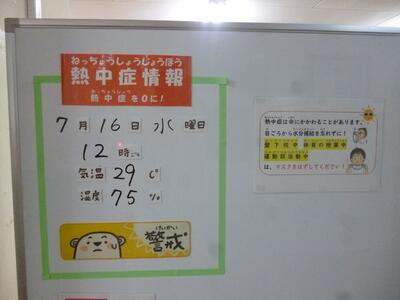 ねっちゅうしょうじょうほう
熱中症情報
ねっちゅうしょう
熱中症を0に!
7月16日水曜日
12時ごろ
気温29C°
湿度75%
けいかい
警戒
熱中症は命にかかわることがあります。
日ごろから水分補給を忘れずに!
登下校中 体育の授業中
運動部活動中
は、マスクをはずしてください!